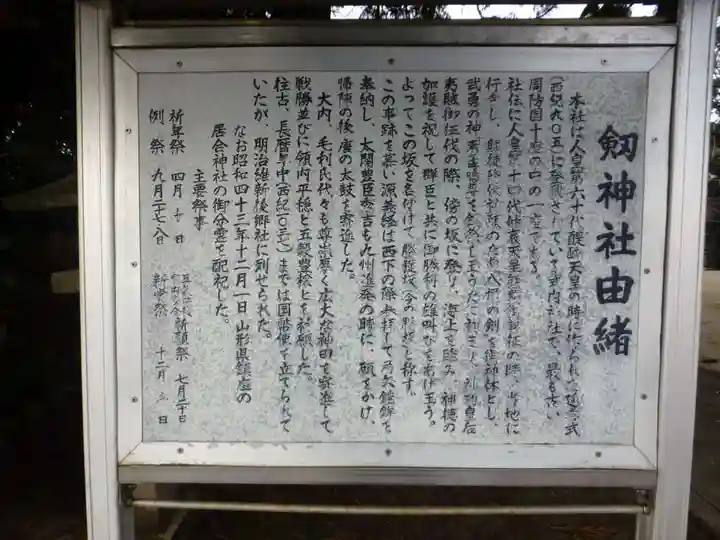 剱神社由緒
本社は人皇第六十代醍醐天皇の時に作られた延喜式
(西紀九〇五)に登載されている式内神社で、最も古い
周防国十座の中の一座である。
社伝に人皇第十四代仲哀天皇 の際、当地に
行幸し、 八握の剣を御神体とし、
武勇の神素盞鳴尊を 神功皇后
夷賊御征伐の際、傍の坂に登り、海上を臨み、神徳の
加護を祝して群臣と共に御勝利の雄叫びをあげ玉う。
よってこの坂を名付けて と称す。
この事跡を慕い源義経は西下の際参拝して 鎧を
奉納し、太閤豊臣秀吉も九州進発の時に、願をかけ、
帰陣の後、座の太鼓を寄進した。
大内、毛利氏代々も尊崇悪く広大な神田を寄進して
戦勝並びに領内平穏と五穀豊穣とを祈願した。
往古、長暦年中(西紀一〇三七)までは国幣使を立てられて
いたが、明治維新後郷社に列せられた。
なお昭和四十三年十二月一日山形県鎮座の
居合神社の御分霊を配祀した。
主要祭事
祈年祭 四月十日 祈願祭 七月二十日
例祭 九月二十七、八日 新嘗祭 十二月 日